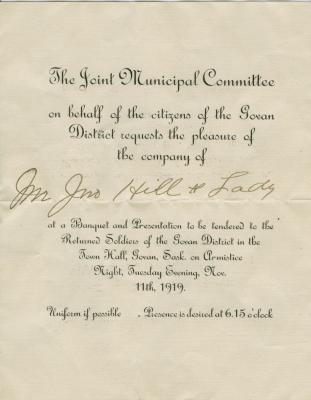 The Joint Municipal Committee
on behalf of the citizens of the Govan
District requests the pleasure of
the company of
Mr Jno Hill & Lady
at a Banquet and Presentation to be tendered to the
Returned Soldiers of the Govan District in the
Town Hall, Govan, Sask. on Armistice
Night, Tuesday Evening, Nov.
11th, 1919.
Uniform if possible . Presence is desired at 6.15 o'clock